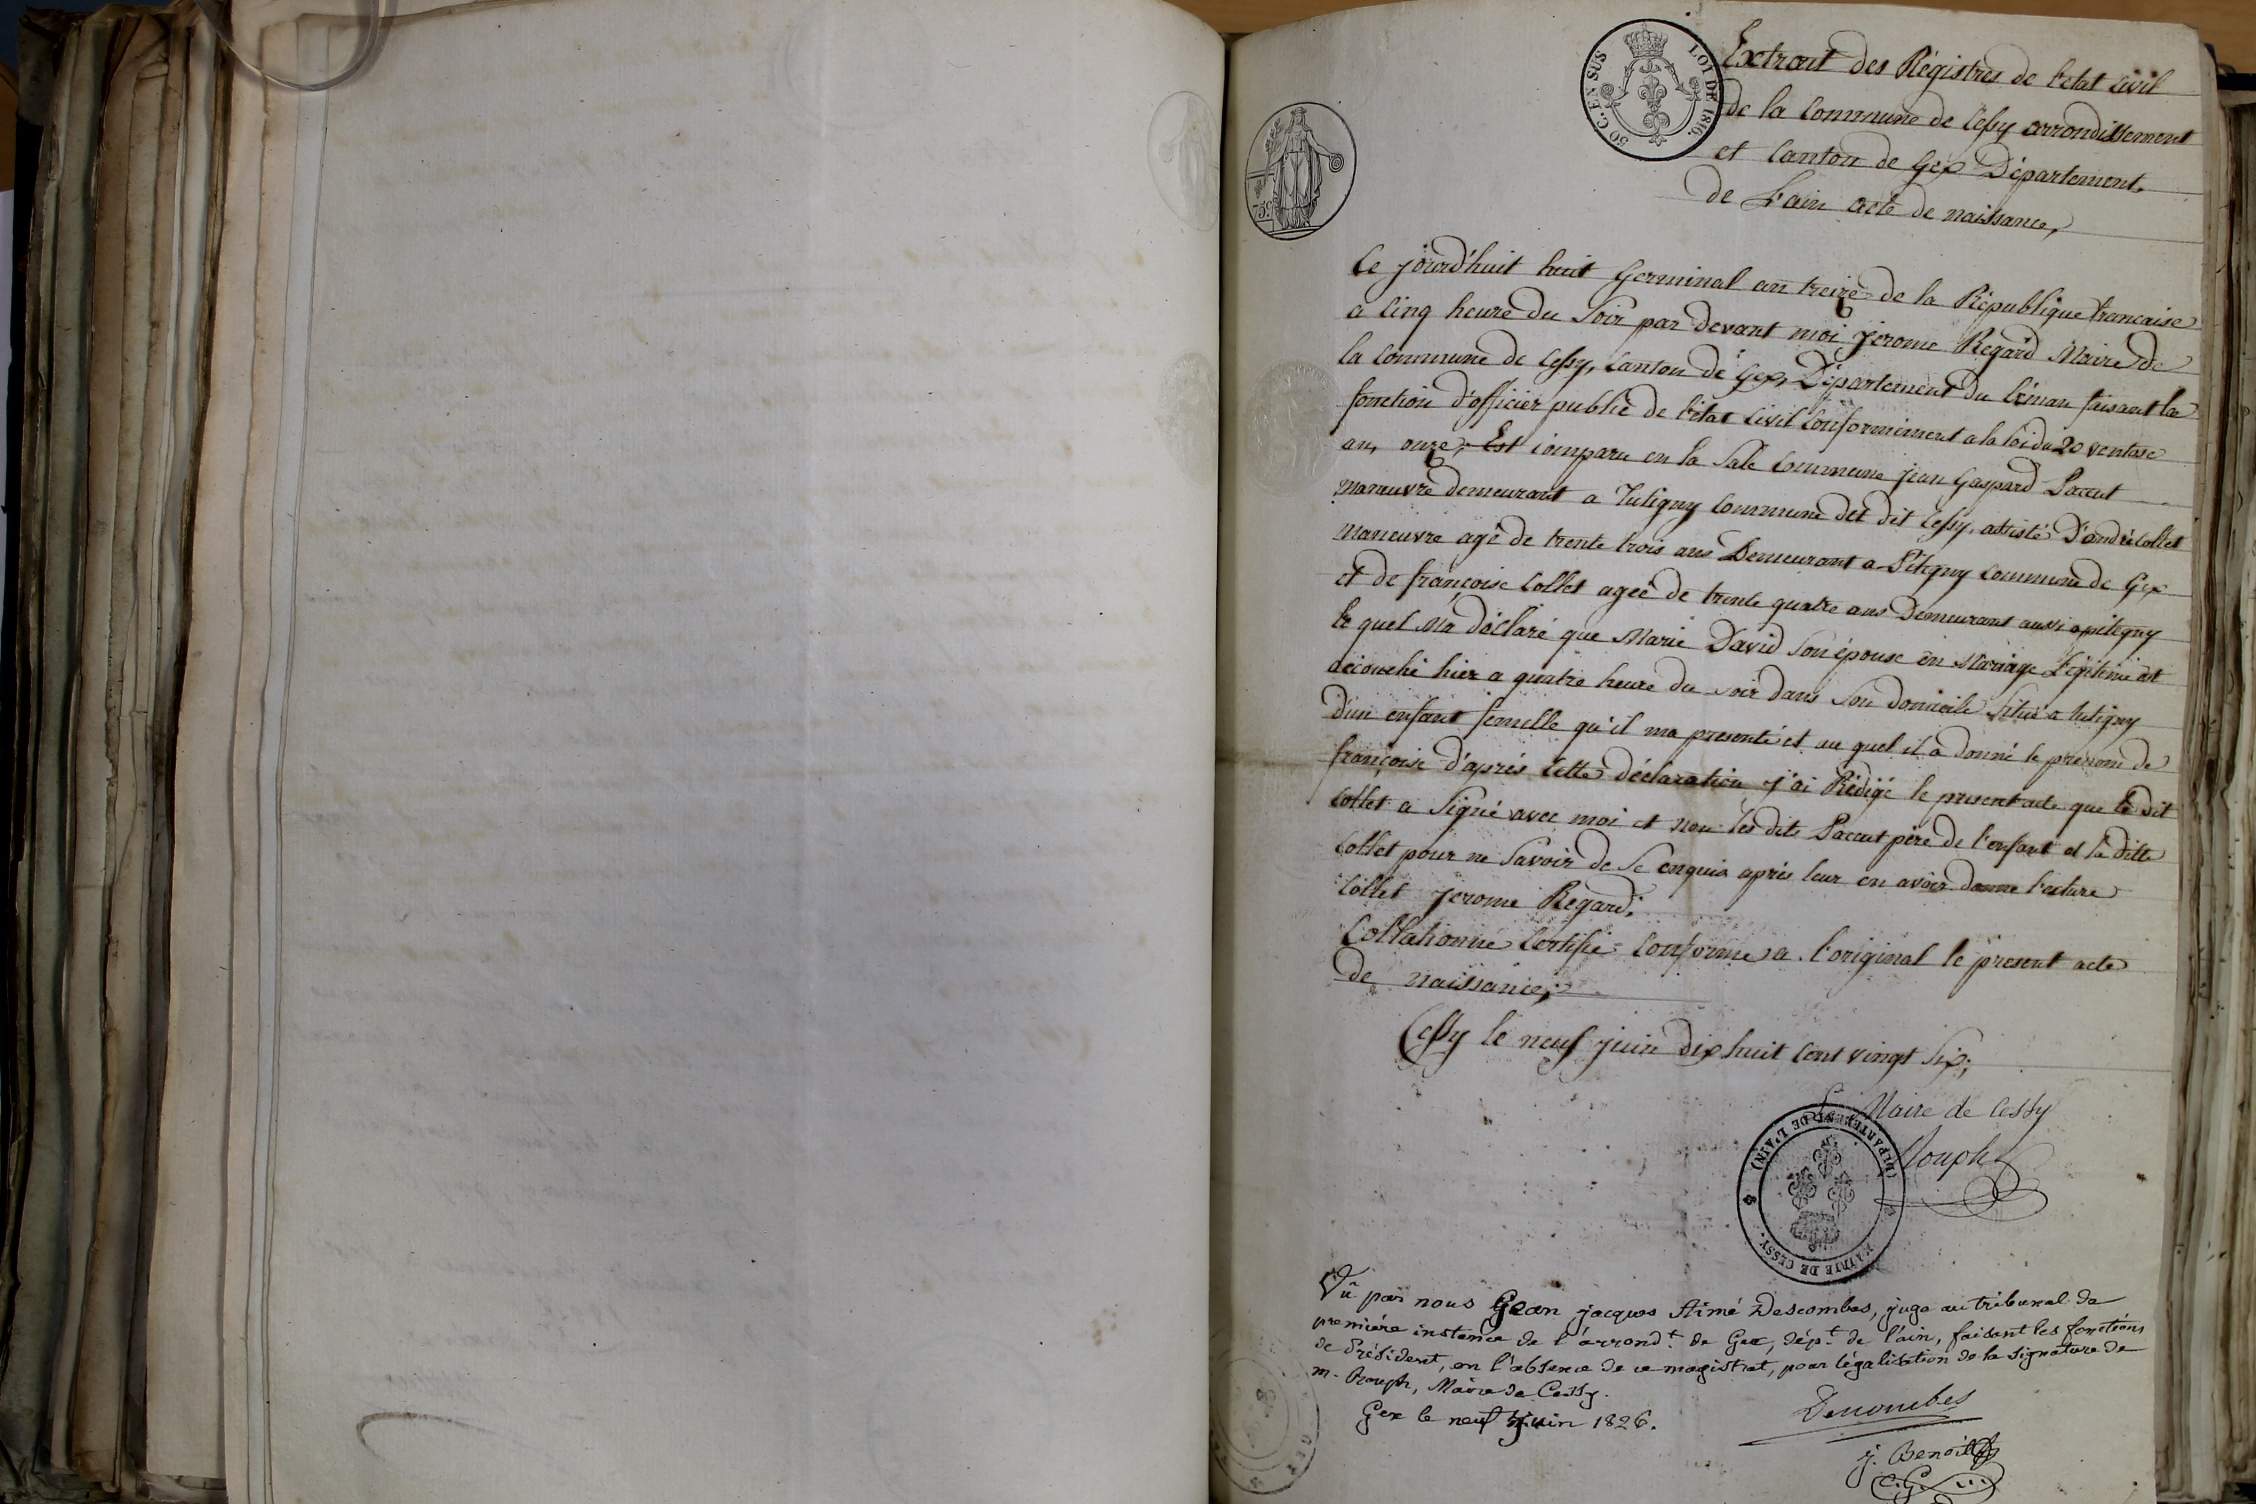 50 C. EN SUS
LOI DE 1816.
75c
Extrait des Régistres de l'etat civil
de la Commune de Cessy arrondissement
et Canton de Gex Département
de L'ain acte de naissance,
Ce jourd'huit huit Germinal an treize de la République francaise
a Cinq heure du Soir par devant moi Jerome Regard Maire de
la Commune de Cessy, Canton de Gex, Département du Léman faisant la
fonction d'officier public de l'état Civil Conformément a la loi du 20 ventose
an, onze, Est comparu en la Sale Commune jean Gaspard Paccut
manœuvre demeurant a Tutigny Commune det dit Cessy, assisté D'andré Collet
maneuvre agé de trente trois ans Demeurant a Pitegny Commune de Gex
et de françoise Collet ageé de trente quatre ans Demeurant aussi a pitegny
le quel Ma déclaré que Marie David Son épouse en Mariage Légitime est
accouché hier a quatre heure du soir dans Son domicile Situé a tutigny
d'un enfant femelle qu'il ma presenté et au quel il a donné le prénom de
françoise d'après Cette déclaration j'ai Rédigé le present acte que le dit
Collet a Signé avec moi et non les dits Paccut père de l'enfant et la ditte
Collet pour ne Savoir de Se enquis après leur en avoir donne lecture
Collet Jerome Regard.
Collationné Certifié Conforme a l'original le present acte
de naissance,
Cessy le neuf juin dix huit Cent vingt Six;
Le Maire de Cessy
Rouph
MAIRIE DE CESSY. (DÉPARTEMENT DE L'AIN)
Vû par nous Jean jacques Aimé Descombes, juge au tribunal de
première instance de l'arrondt. de Gex, dépt. de l'ain, faisant les fonctions
de Président, en l'absence de ce magistrat, pour légalisation de la signature de
m. Rouph, Maire de Cessy.
Gex le neuf Juin 1826.
Descombes
j. Benoit
C. G.